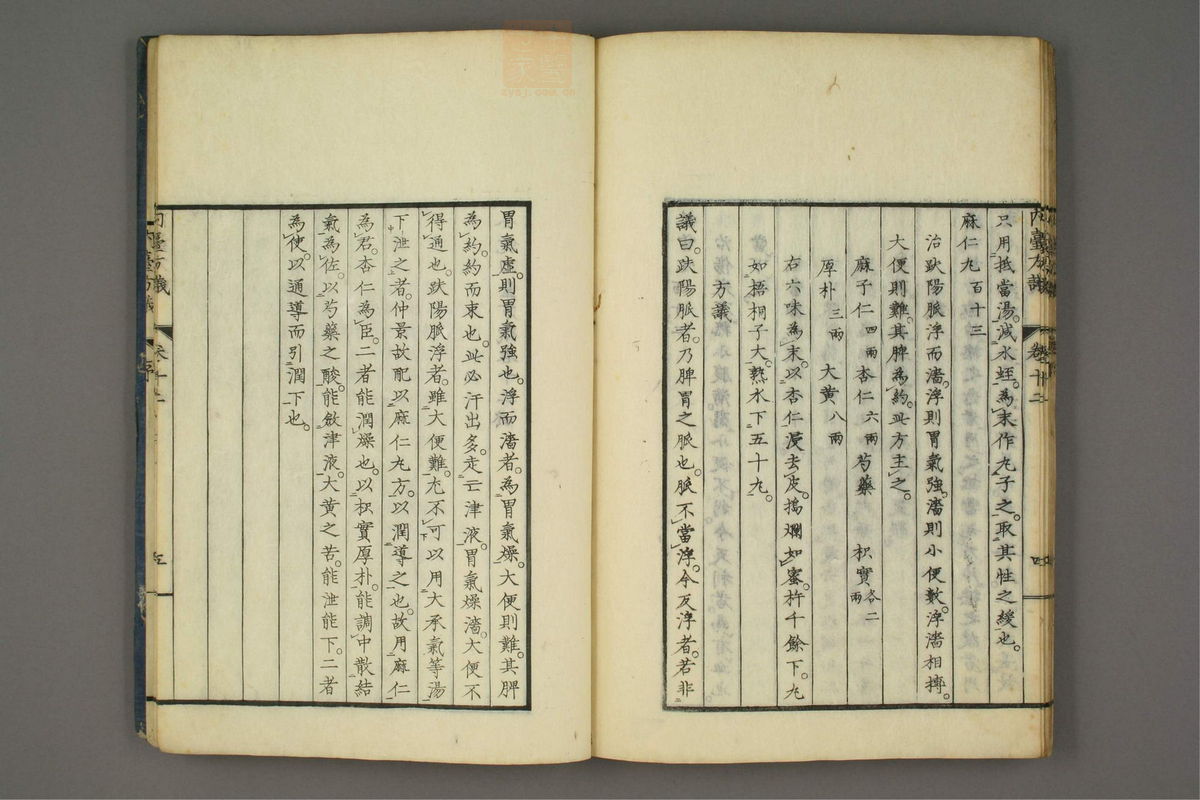 只用抵當湯。減水蛭。為末作丸子之。取其性之緩也。
麻仁丸百十三
治趺陽脈浮而濇。浮則胃氣強。濇則小便數。浮濇相摶。
大便則難。其脾為約。此方主之。
麻子仁四兩 杏仁六兩 芍藥 枳實各二兩
厚朴三兩 大黃八兩
右六味為末。以杏仁浸去皮。搗爛如蜜。杵千餘下。丸
如梧桐子大。熟水下五十丸。
方議
議曰。趺陽脈者。乃脾胃之脈也。脈不當浮。今反浮者。若非
內臺方議 卷十二 四
胃氣虛。則胃氣強也。浮而濇者。為胃氣燥。大便則難。其脾
為約。約而束也。此必汗出多。走亡津液。胃氣燥濇。大便不
得通也。趺陽脈浮者。雖大便難。尤不可以用大承氣等湯
下泄之者。仲景故配以麻仁丸方。以潤導之也。故用麻仁
為君。杏仁為臣。二者能潤燥也。以枳實厚朴。能調中散結
氣為佐。以芍藥之酸。能斂津液。大黃之苦。能泄能下。二者
為使。以通導而引潤下也。
內臺方議 五
zysj.com.cn